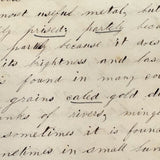 most useful metal, but
ly prised; partely beca
partly because it does
its brightness and las
is found in many cou
grains caled gold d
nks of rivers, ming
sometimes it is found
netimes in small bun